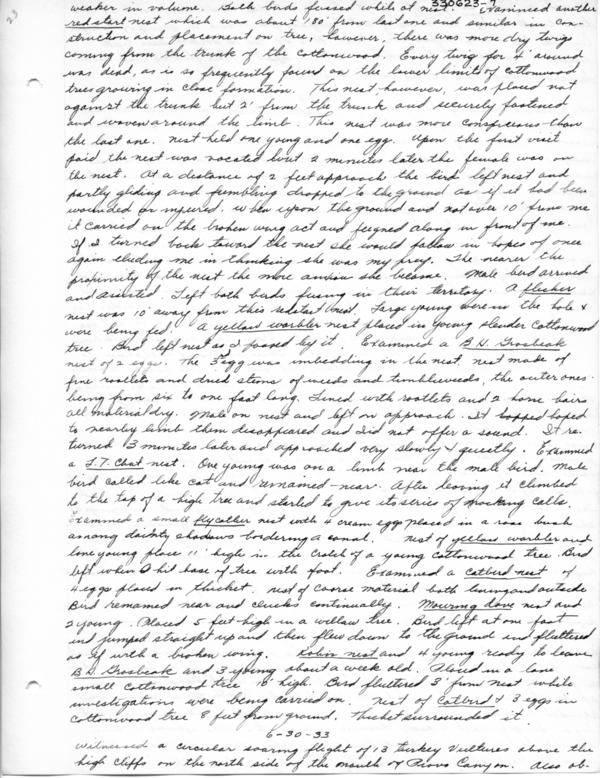 23
330623-7
weaker in volume. Both birds fussed while at nest. Examined another
redstart nest which was about 180' from last one and similar in con-
struction and placement on tree, however, there was more dry twigs
coming from the trunk of the cottonwood. Every twig for 4' around
was dead, as is so frequently found on the lower limits of cottonwood
trees growing in close formation. This nest, however, was placed not
against the trunk but 2' from the trunk and securely fastened
and woven around the limb. This nest was more conspicious than
the last one. nest held one young and one egg. Upon the first visit
paid the nest was vacated but 2 minutes later the female was on
the nest. At a distance of 2 feet approach the bird left nest and
partly gliding and fumbling dropped to the ground as if it had been
wounded or injured. When upon the ground and not over 10' from me
it carried on the broken wing act and feigned along in front of me.
If I turned back toward the nest she would follow in hopes of once
again eluding me in thinking she was my prey. The nearer the
proximity of the nest the more anxious she became. Male bird arrived
and assisted. Left both birds fussing in their territory. A flicker
nest was 10' away from this redstart nest. Large young were in the hole &
were being fed. A yellow warbler nest placed in young slender Cottonwood
tree. Bird left nest as I passed by it. Examined a B.H. Grosbeak
nest of 2 eggs. The 3rd egg was imbedding in the nest, nest made of
fine rootlets and dried stems of weeds and tumbleweeds, the outer ones
being from six to one foot long. Lined with rootlets and 2 horse hairs
all material dry. Male on nest and left on approach. It hopped
to nearby limb then disappeared and did not offer a sound. It re-
turned 3 minutes later and approached very slowly & quietly. Examined
a L.T. Chat nest. One young was on a limb near the male bird. Male
bird called like cat and remained near. After leaving it climbed
to the top of a high tree and started to give its series of mocking calls.
Examined a small flycatcher nest with 4 cream eggs placed in a rose bush
among dainty shadows bordering a canal. Nest of yellow warbler and
lone young place 11' high in the Crotch of a young Cottonwood tree. Bird
left when I hit base of tree with foot. Examined a catbird nest of
4 eggs placed in thicket. nest of coarse material both lining and outside
Bird remained near and clucks continually. Mourning dove nest and
2 young. Placed 5 feet high in a willow tree. Bird left at one foot
and jumped straight up and then flew down to the ground and fluttered
as if with a broken wing. Robin nest and 4 young ready to leave
B.H. Grosbeak and 3 young about a week old. Placed in a lone
small cottonwood tree 10' high. Bird fluttered 3' from nest while
investigations were being carried on. Nest of Catbird & 3 eggs in
cottonwood tree 8 feet from ground. Thicket surrounded it.
6-30-33
Witnessed a circular soaring flight of 13 turkey Vultures above the
high cliffs on the north side of the mouth of Provo Canyon. Also ob-